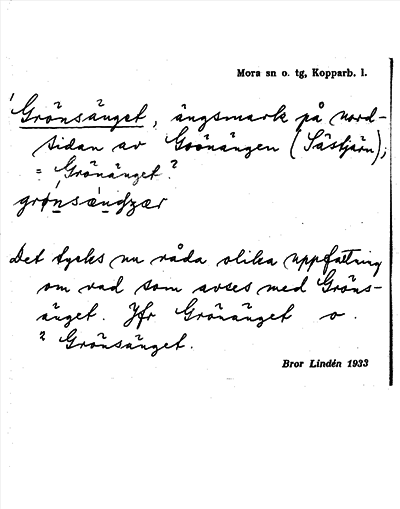 Mora sn o. tg, Kopparb. l.
'Grönsänget, ängsmark på nord-
sidan av Grönängen (Sästjärn);
= Grönänget?
Det tycks nu råda olika uppfattning
om vad som avses med Gröns-
änget. Jfr Grönänget o.
² Grönsänget.
Bror Lindén 1933